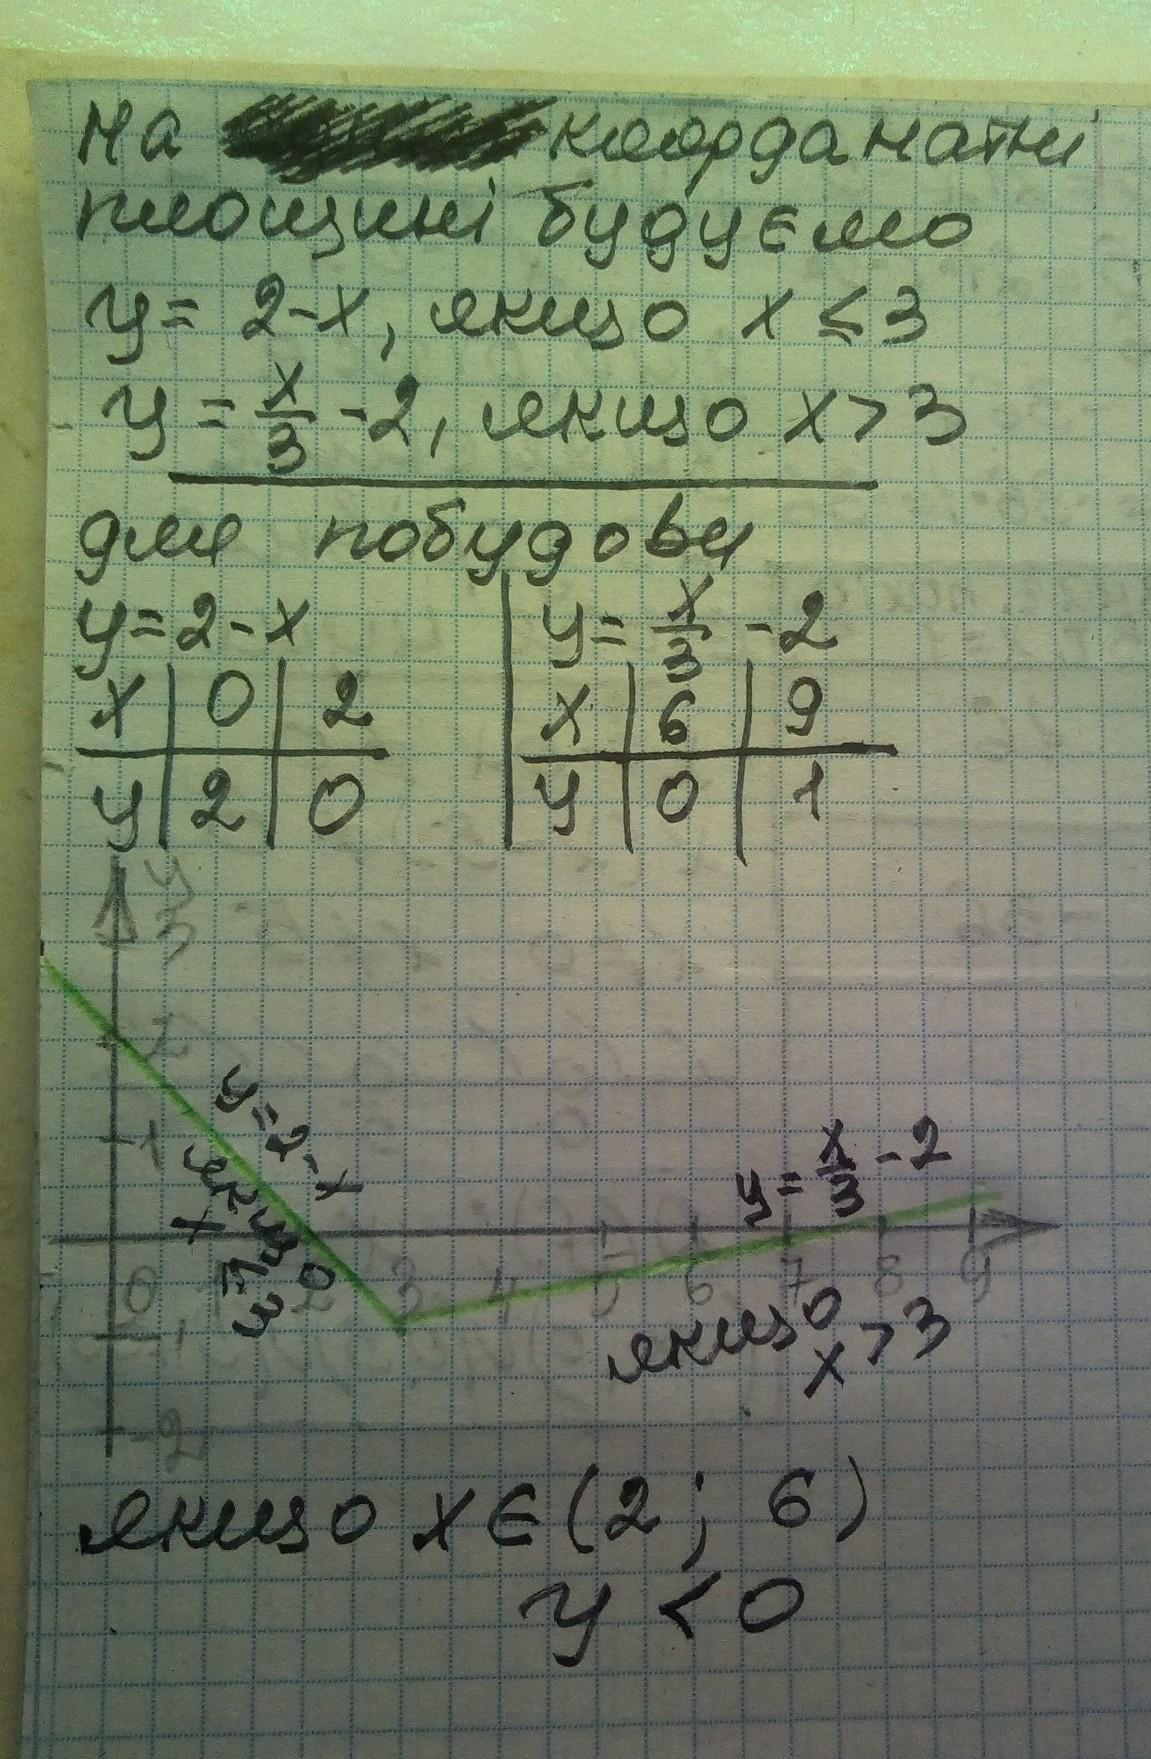 На координатні
площині будуємо
y = 2-x, якщо x ≤ 3
y = x/3 - 2, якщо x > 3
для побудови
y = 2 - x
x 0 2
y 2 0
y = x/3 - 2
x 6 9
y 0 1
y
3
2
1
y = 2 - x
якщо
x ≤ 3
y = x/3 - 2
0 1 2 3 4 5 6 7 8 9
якщо x > 3
-1
-2
якщо x ∈ (2; 6)
y < 0